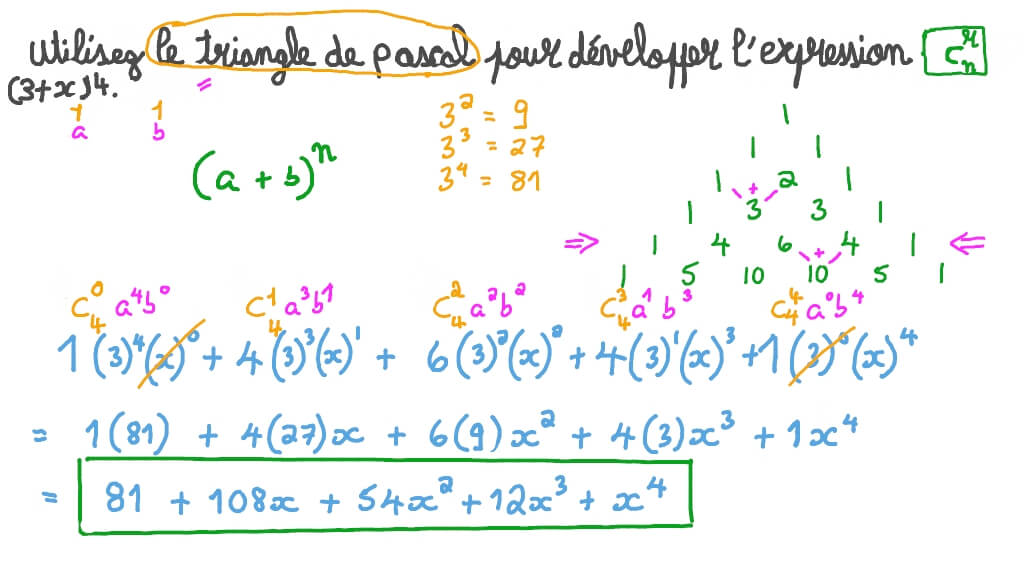 Utilisez le triangle de pascal pour développer l'expression Cₙʳ
(3+x)4.
a b
(a + b)ⁿ
3² = 9
3³ = 27
3⁴ = 81
1
1 1
1 + 2 1
1 3 3 1
⇒ 1 4 6 + 4 1 ⇐
1 5 10 10 5 1
C₄⁰ a⁴b⁰ C₄¹ a³b¹ C₄² a²b² C₄³ a¹b³ C₄⁴ a⁰b⁴
1(3)⁴(x)⁰ + 4(3)³(x)¹ + 6(3)²(x)² + 4(3)¹(x)³ + 1(3)⁰(x)⁴
= 1(81) + 4(27)x + 6(9)x² + 4(3)x³ + 1x⁴
= 81 + 108x + 54x² + 12x³ + x⁴